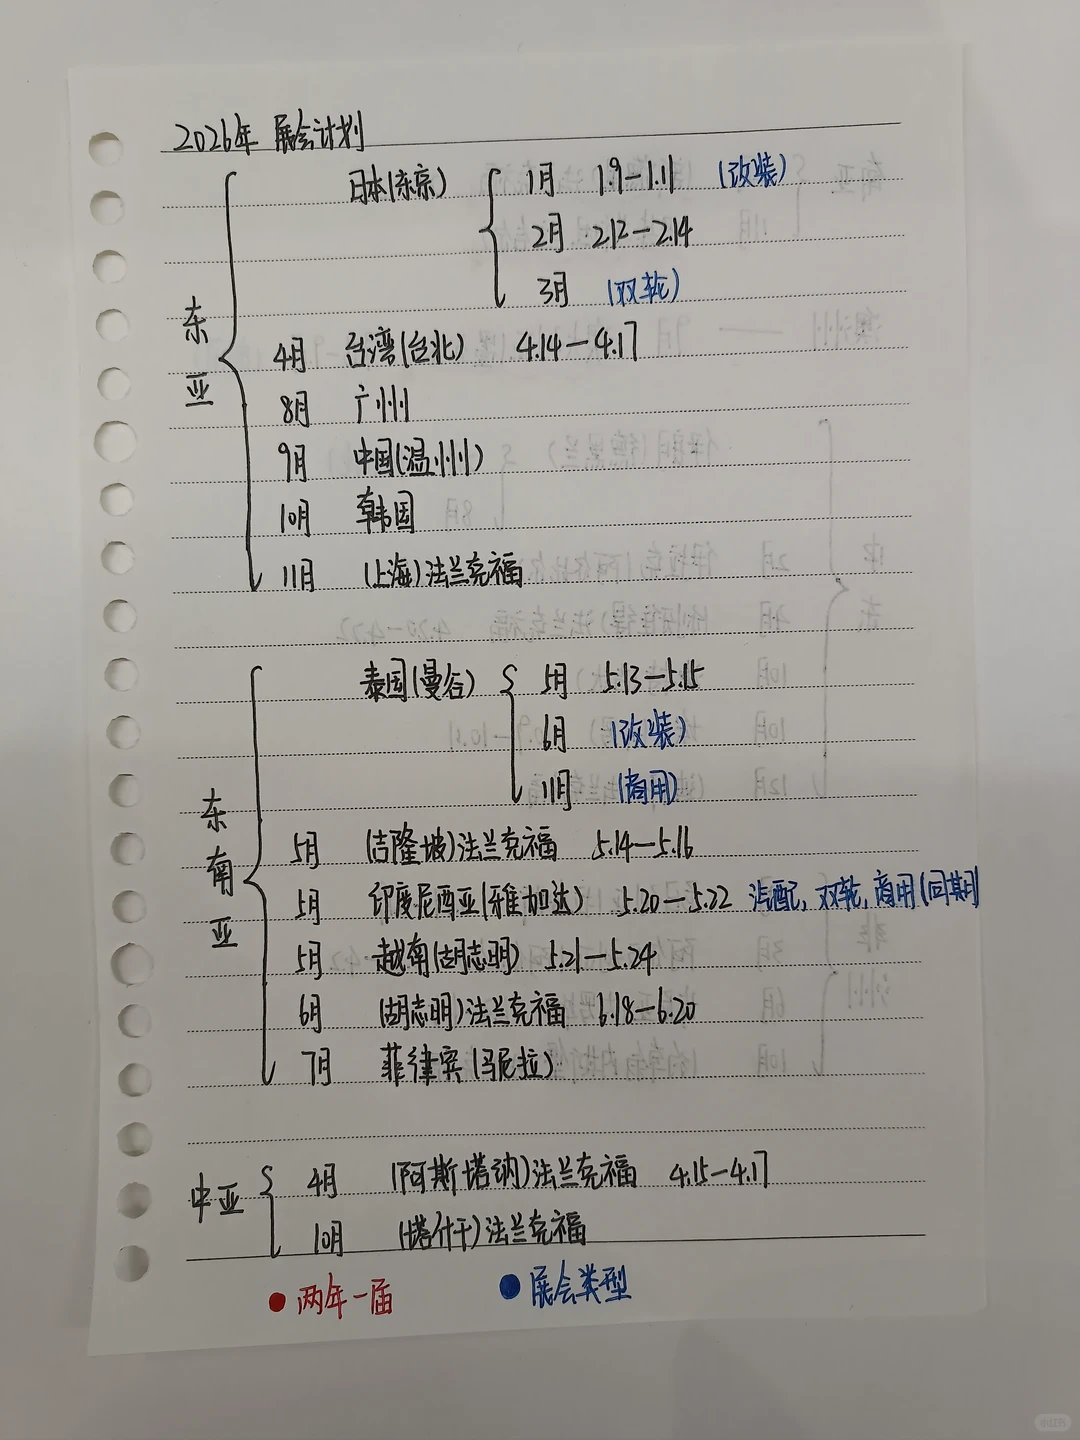 2026年 展会计划
东亚
日本(东京) 1月 1.9-1.11 (改装)
2月 2.12-2.14
3月 (双轮)
4月 台湾(台北) 4.14-4.17
8月 广州
9月 中国(温州)
10月 韩国
11月 (上海)法兰克福
东南亚
泰国(曼谷) 5月 5.13-5.15
6月 (改装)
11月 (商用)
5月 (吉隆坡)法兰克福 5.14-5.16
5月 印度尼西亚(雅加达) 5.20-5.22 汽配,双轮,商用(同期)
5月 越南(胡志明) 5.21-5.24
6月 (胡志明)法兰克福 6.18-6.20
7月 菲律宾(马尼拉)
中亚
4月 (阿斯塔纳)法兰克福 4.15-4.17
10月 (塔什干)法兰克福
两年一届 展会类型
小红书